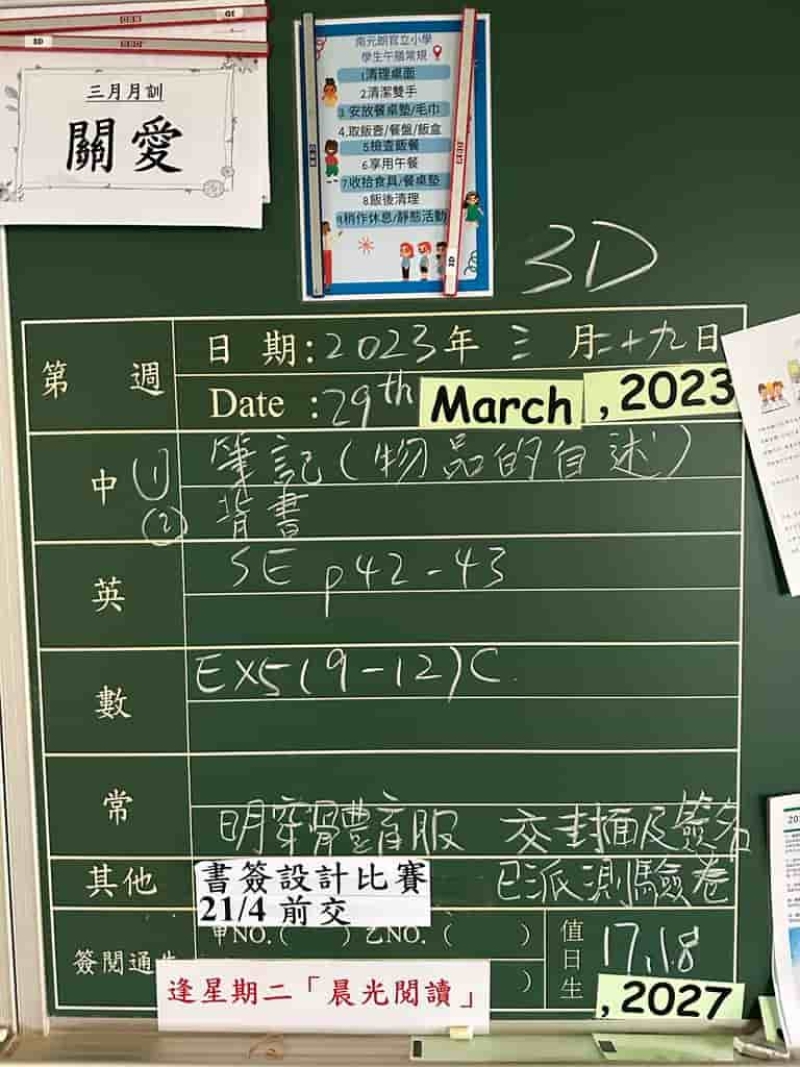 三月月訓
關愛
南元朗官立小學
學生午膳常規
1清理桌面
2.清潔雙手
3.安放餐桌墊/毛巾
4.取飯壺/餐盤/飯盒
5檢查飯餐
6.享用午餐
7收拾食具/餐桌墊
8.飯後清理
9.稍作休息/靜態活動
3D
第 週
日 期:2023年 三 月二十九日
Date :29th March , 2023
中 (1) 筆記(物品的自述)
(2) 背書
英 SE p42-43
數 EX5(9-12)C.
常
明穿體育服 交封面及簽名
其他 書簽設計比賽 已派測驗卷
21/4 前交
簽閱通 甲NO.( ) 乙NO.( ) 值日生 17,18
)
逢星期二「晨光閱讀」
, 2027